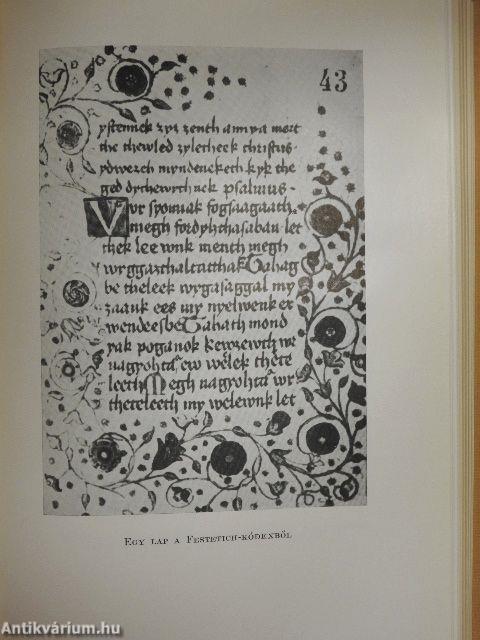 43
ystennek zyz zenth annya mert
the thewled zyletheek christus
ydwezeh myndeneketh kyk the
ged dychewythnek psalmus
Vvr syonnak fogsaagaath
megh fordythasaban let
thek lee wnk menth megh
wyggazthaltatthak Tahag
be theleek wygasaggal my
zaank ees my nyelwenk er
wendeesbe Tahath mond
yak poganok kewzewth we
nagyohta ew welek thete
leeth Megh nagyohta wr
theteleeth my welewnk let
EGY LAP A FESTETICH-KÓDEXBŐL
Antikvárium.hu